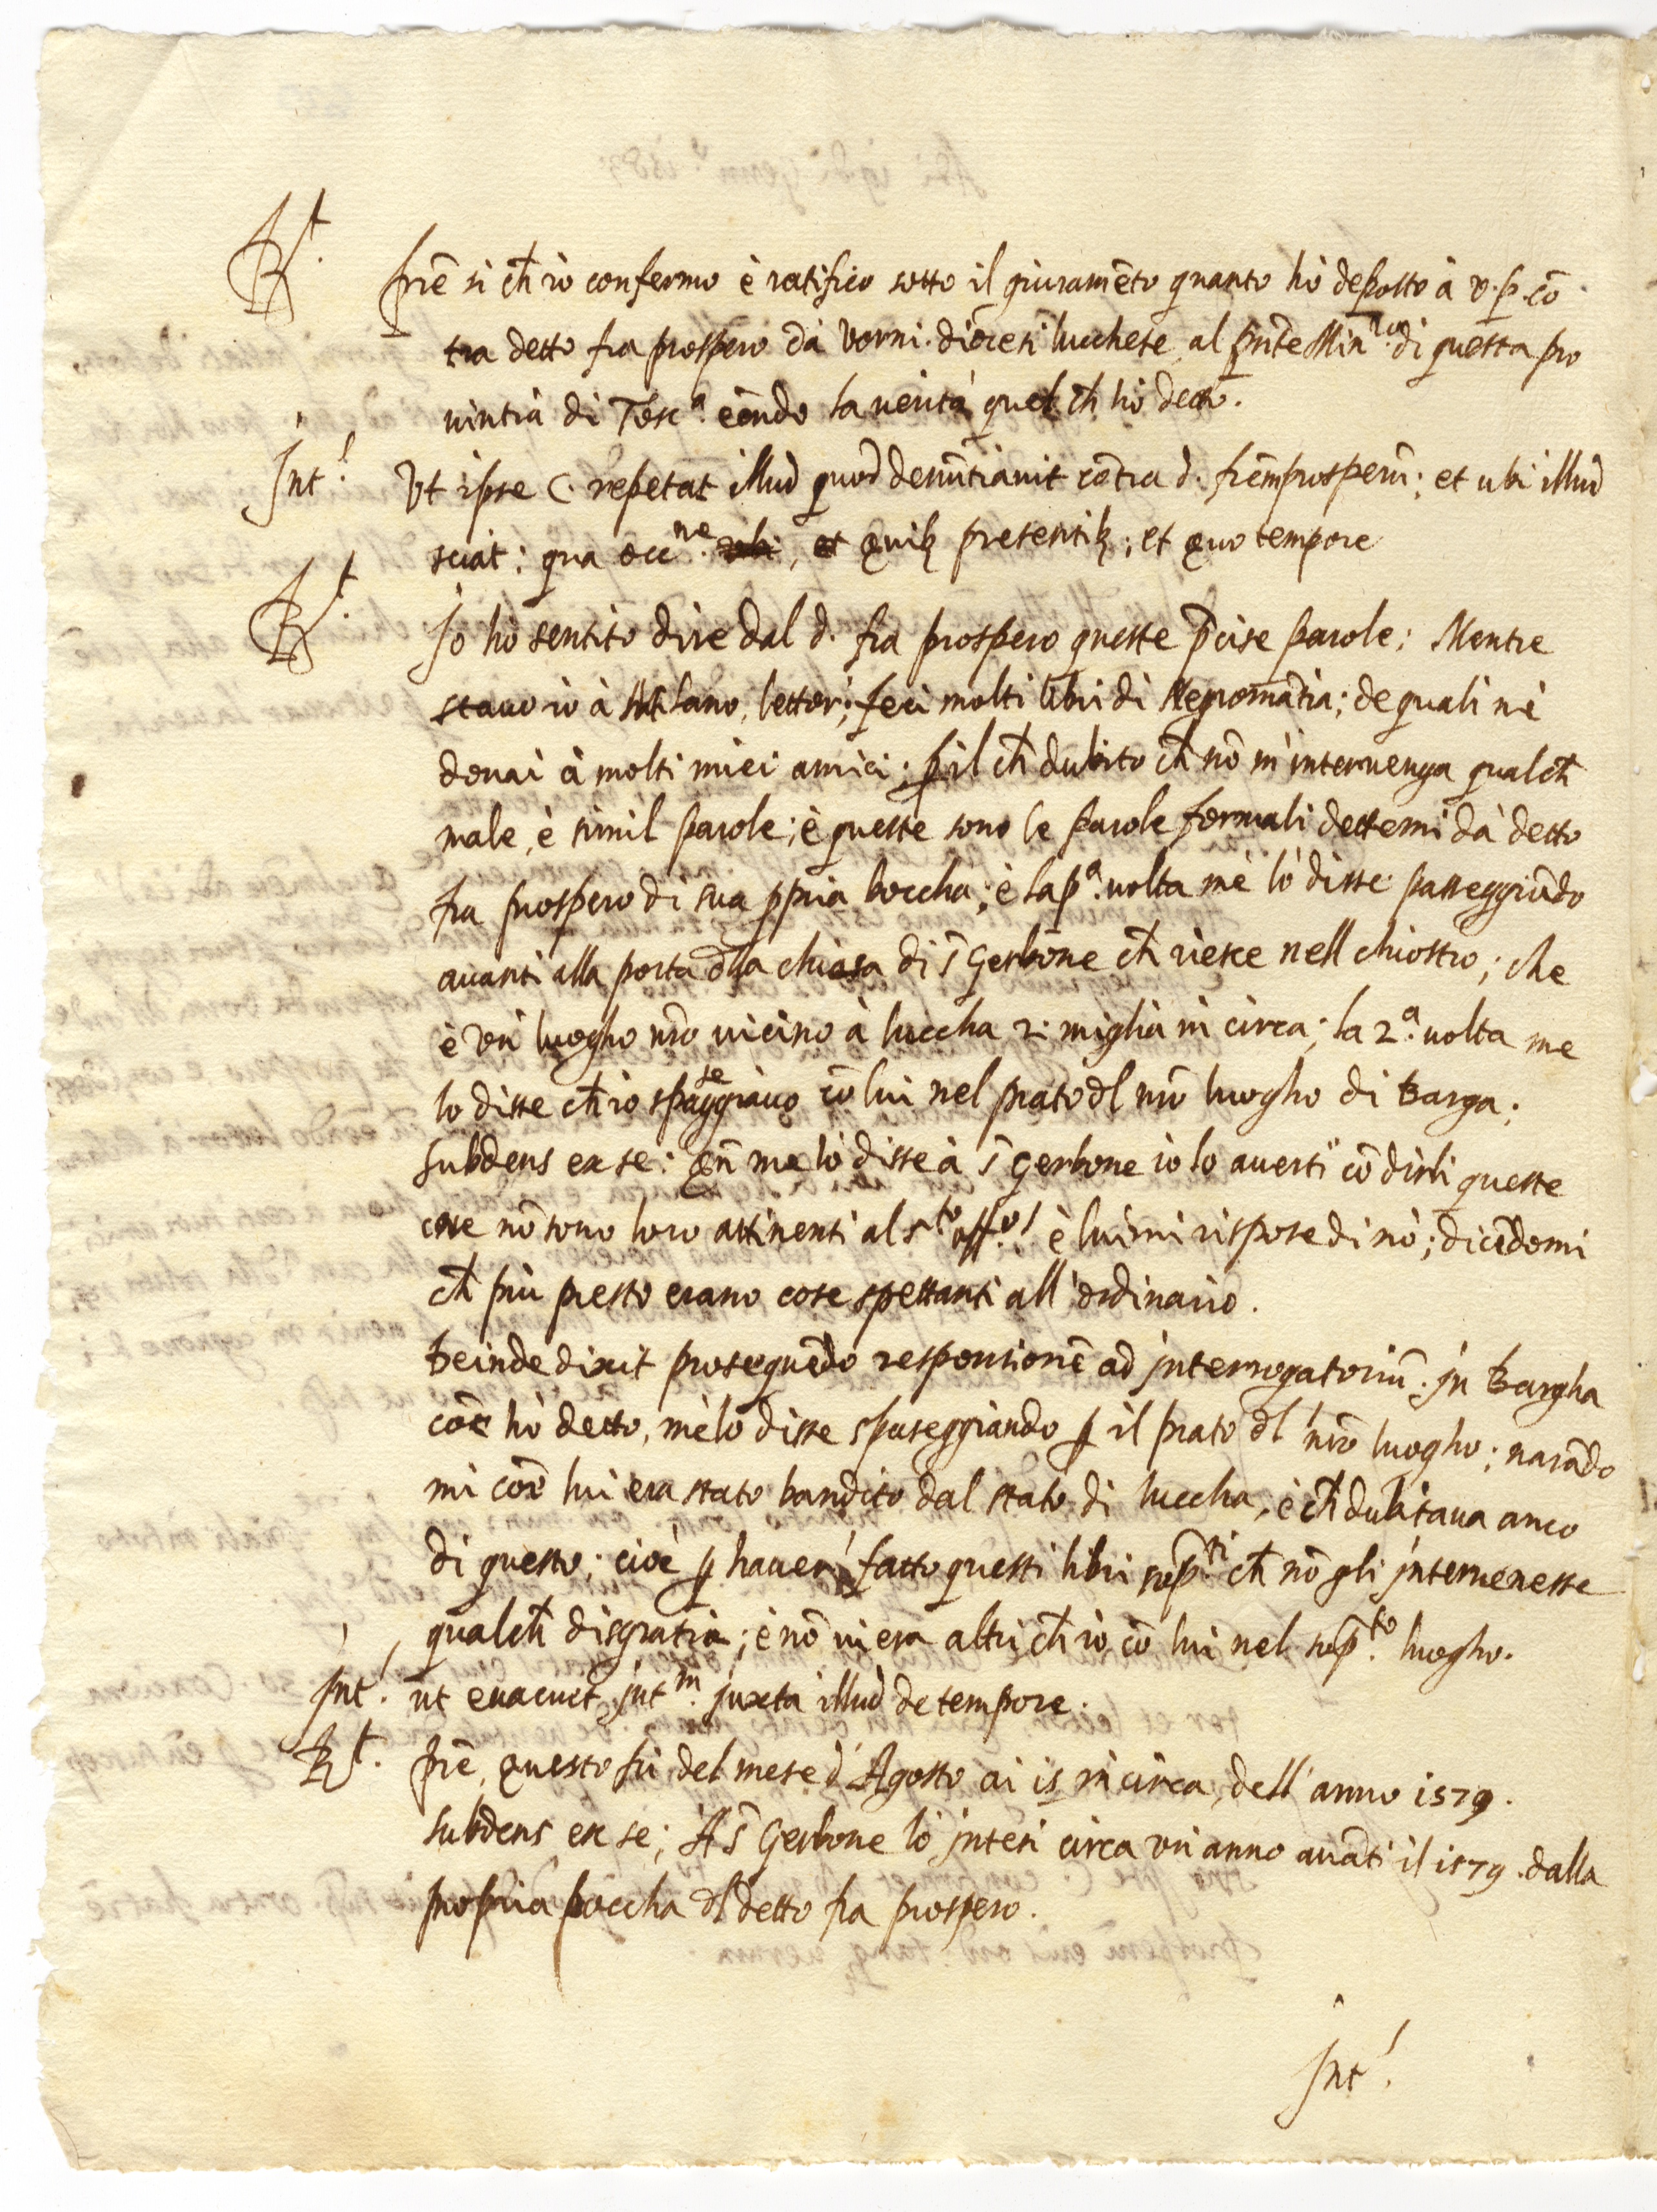 Rt. Prē si ch̄ io confermo è ratifico sotto il giuramēto quanto hò deposto à v. p. cō
tra detto fra prospero da Vorni. diocesi lucchese al pn̄te Min.ro di questa pro
vintia di Tosc.a eēndo la verità quel ch̄ hò detto.
Int.' Vt ipse C. repetat illud quod denūtiavit cōtra d. frēm prosperū; et ubi illud
sciat: qua occ.ne ubi, et quibꝫ presentibꝫ; et quo tempore
Rt. Io hò sentito dire dal d. fra prospero queste p̄cise parole: Mentre
stavo io à Milano, lettor; feci molti libri di Negromātia; de quali nè
donai à molti miei amici; ꝑ il ch̄ dubito ch̄ nō m'intervenga qualch̄
male, è simil parole; è queste sono le parole formali dettemi dà detto
fra prospero di sua ꝓpria boccha; è la p.a volta mè lò disse passeggiādo
avanti alla porta dlla chiesa di S̄ Gerbone ch̄ riesce nell chiostro; che
è un luogho nr̄o vicino à luccha 2: miglia in circa; la 2.a volta me
lo disse ch̄ io spaseggiavo cō lui nel prato dl nr̄o luogho di Barga;
Subdens ex se: Qn̄ me lò disse à S̄ Gerbone io lo averti cō dirli queste
cose nō sono loro attinenti al S.to off.o! è lui mi rispose di nò; dicēdomi
ch̄ più presto erano cose spettanti all'ordinario.
Deinde dixit prosequēdo responsionē ad interrogatoriū. in Bargha
coē hò detto, mè lo disse spaseggiando ꝑ il prato dl nr̄o luogho; narādo
mi coē lui era stato bandito dal stato di luccha, è ch̄ dubitava anco
di questo; cioè ꝑ haver' fatto questi libri sop.ti ch̄ nō gli intervenesse
qualch̄ disgratia; è nō vi era altri ch̄ io cō lui nel sop.to luogho.
Int.' ut evacuet int.m juxta illud de tempore.
Rt. Prē, questo fù del mese d'Agosto ai 15 in circa, dell'anno 1579.
Subdens ex se; A S̄ Gerbone lò intesi circa un anno avāti il 1579. dalla
propria boccha dl detto fra prospero.
Int.'